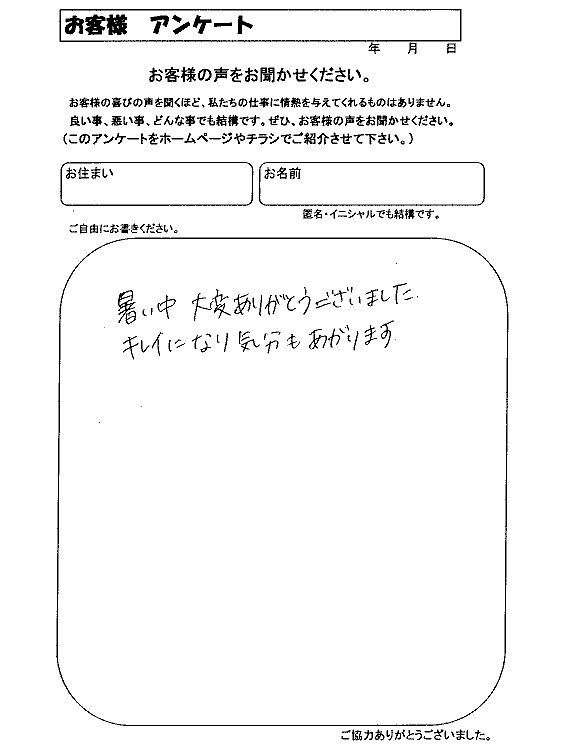 お客様 アンケート
年 月 日
お客様の声をお聞かせください。
お客様の喜びの声を聞くほど、私たちの仕事に情熱を与えてくれるものはありません。
良い事、悪い事、どんな事でも結構です。ぜひ、お客様の声をお聞かせください。
（このアンケートをホームページやチラシでご紹介させて下さい。）
お住まい
お名前
匿名・イニシャルでも結構です。
ご自由にお書きください。
暑い中 大変ありがとうございました。
キレイになり気分もあがります
ご協力ありがとうございました。